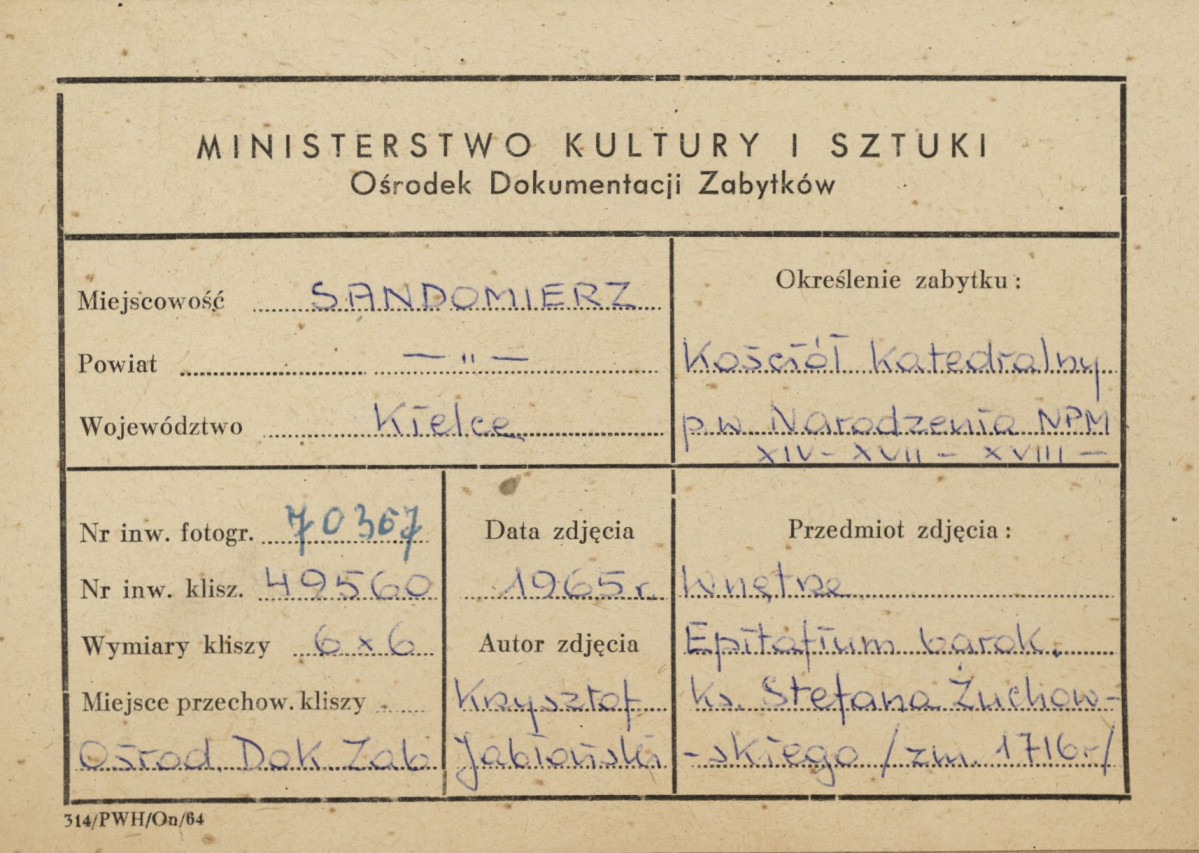 MINISTERSTWO KULTURY I SZTUKI
Ośrodek Dokumentacji Zabytków
Miejscowość SANDOMIERZ
Powiat — " —
Województwo Kielce
Określenie zabytku:
Kościół Katedralny
p.w Narodzenia NPM
XIV - XVII - XVIII -
Nr inw. fotogr. 70367
Nr inw. klisz. 49560
Wymiary kliszy 6 x 6
Miejsce przechow. kliszy
Ośrod. Dok Zab
Data zdjęcia
1965 r.
Autor zdjęcia
Krzysztof
Jabłoński
Przedmiot zdjęcia:
Wnętrze
Epitafium barok.
ks. Stefana Żuchow-
-skiego /zm. 1716r/
314/PWH/On/64